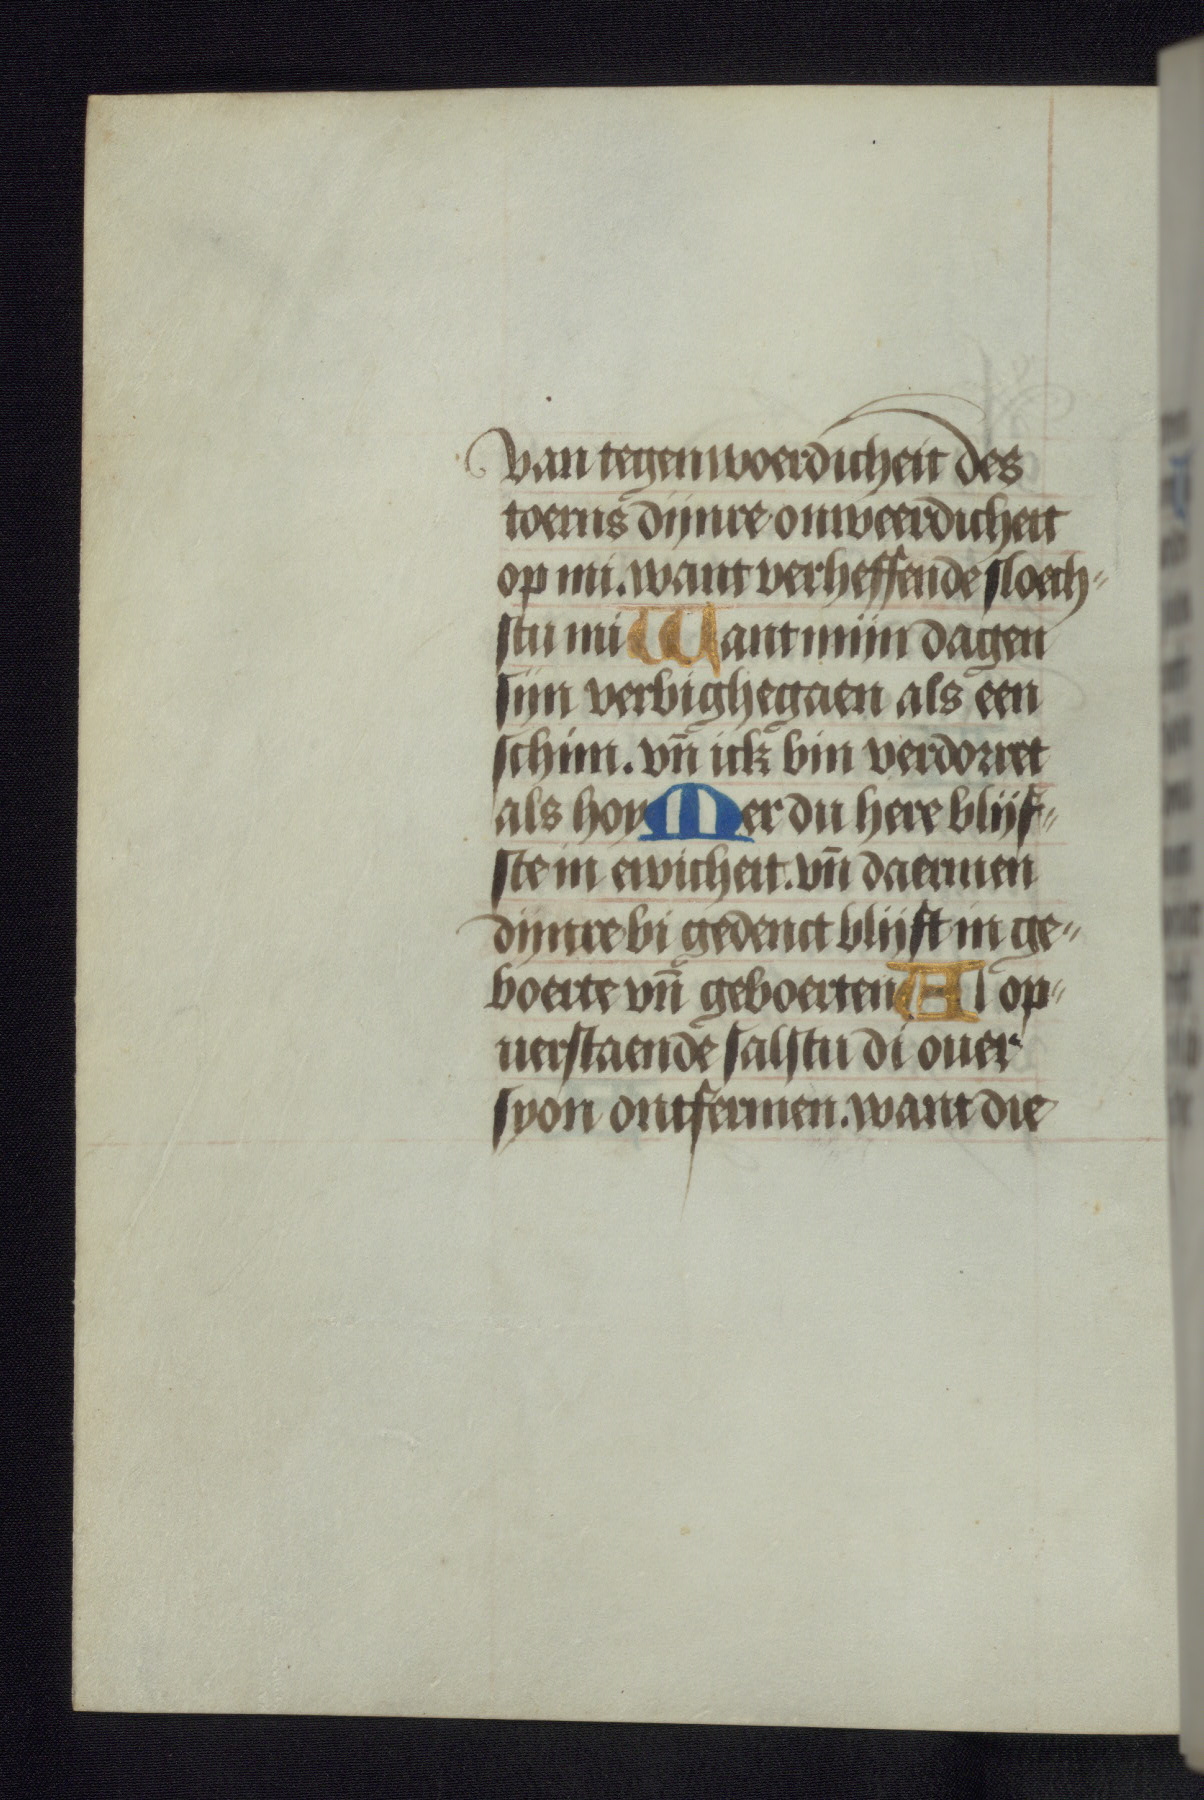 van tegenwoerdicheit des
toerns dijnre onweerdicheit
op mi. want verheffende sloech⸗
stu mi Want mijn dagen
sijn verbighegaen als een
schim. vn̄ ick bin verdorret
als hoy Mer du here blijf⸗
ste in ewicheit. vn̄ daermen
dijnre bi gedenct blijft in ge⸗
boerte vn̄ geboerten Al op⸗
uerstaende salstu di ouer
syon ontfermen. want die